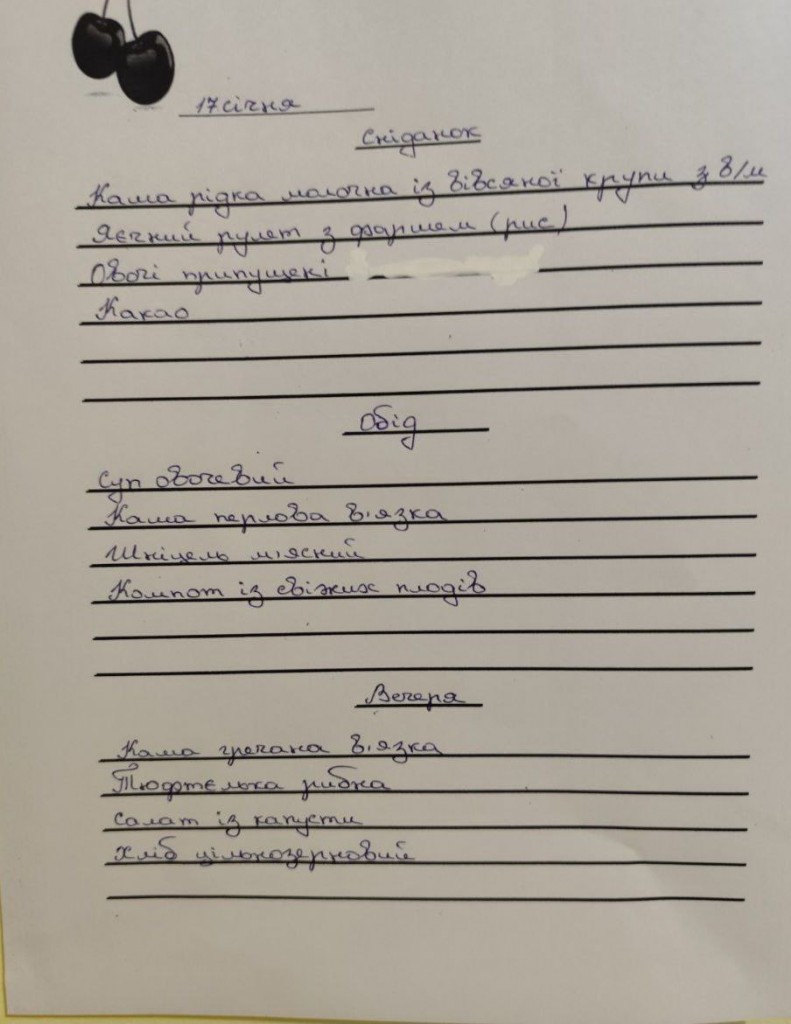 17 січня
Сніданок
Каша рідка молочна із вівсяної крупи з в/м
Яєчний рулет з фаршем (рис)
Овочі припущені
Какао
Обід
Суп овочевий
Каша перлова в'язка
Шніцель м'ясний
Компот із свіжих плодів
Вечеря
Каша гречана в'язка
Тюфтелька рибна
Салат із капусти
Хліб цільнозерновий